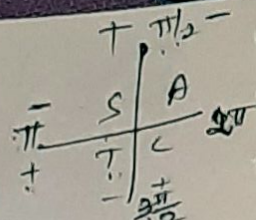 + π/2 -
- S A
π 2π
+ T C
- +
3π/2